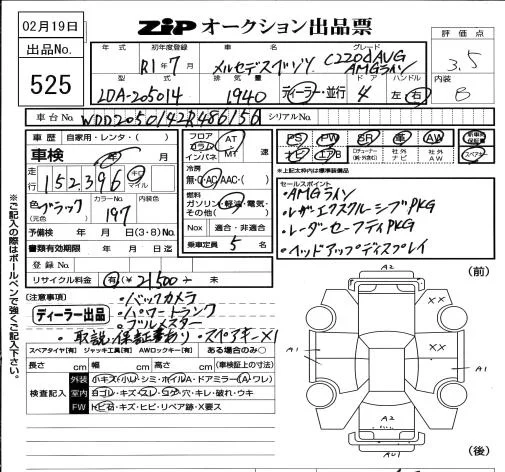 02月19日
ZIP オークション出品票
評価点
3.5
出品No.
525
年式 初年度登録 車名 グレード
R1年7月 メルセデスベンツ C220d AVG
AMGライン
型式 排気量 ドア ハンドル 内装
LDA-205014 1940 ディーラー・並行 4 左・右 B
車台No. WDD2050142R486156 シリアルNo.
車歴 自家用・レンタ・( )
車検 年 月
走行 152,396 キロ マイル
色 ブラック (元色) カラーNo. 197 内装色
予備検 年 月 日(3・8)No.
書類有効期限 年 月 日迄
登録No.
リサイクル料金 有(¥21500- 未
フロア コラム インパネ AT MT 速
冷房 無・C・AC・AAC・( )
燃料 ガソリン・軽油・電気・その他( )
Nox 適合・非適合
乗車定員 5 名
PS PW SR 革 AW 新車時保証書
ナビ エアB 社外ナビ 社外AW スペアキー
※上記太枠内は標準装備品
セールスポイント
・AMGライン
・レザーエクスクルーシブPKG
・レーダーセーフティPKG
・ヘッドアップディスプレイ
(注意事項)
ディーラー出品
・バックカメラ
・パワートランク
・ブルメスター
・取説・保証書あり・スペアキーX1
スペアタイヤ[有] ジャッキ工具[有] AWロックキー[有] ある場合のみ○
長さ cm 幅 cm 高さ cm (車検証上の寸法)
検査記入 外装 小キズ・小凹・シミ・ホイルA・ドアミラー(A・ワレ)
室内 ヨゴレ・キズ・スレ・コゲ・穴・キレ・破れ・ウキ
FW トビ石・キズ・ヒビ・リペア跡・X要ス
※ご記入の際はボールペンで強くご記入下さい。
(前)
A2
XX
A1
A1
XX
A2
AU1
(後)